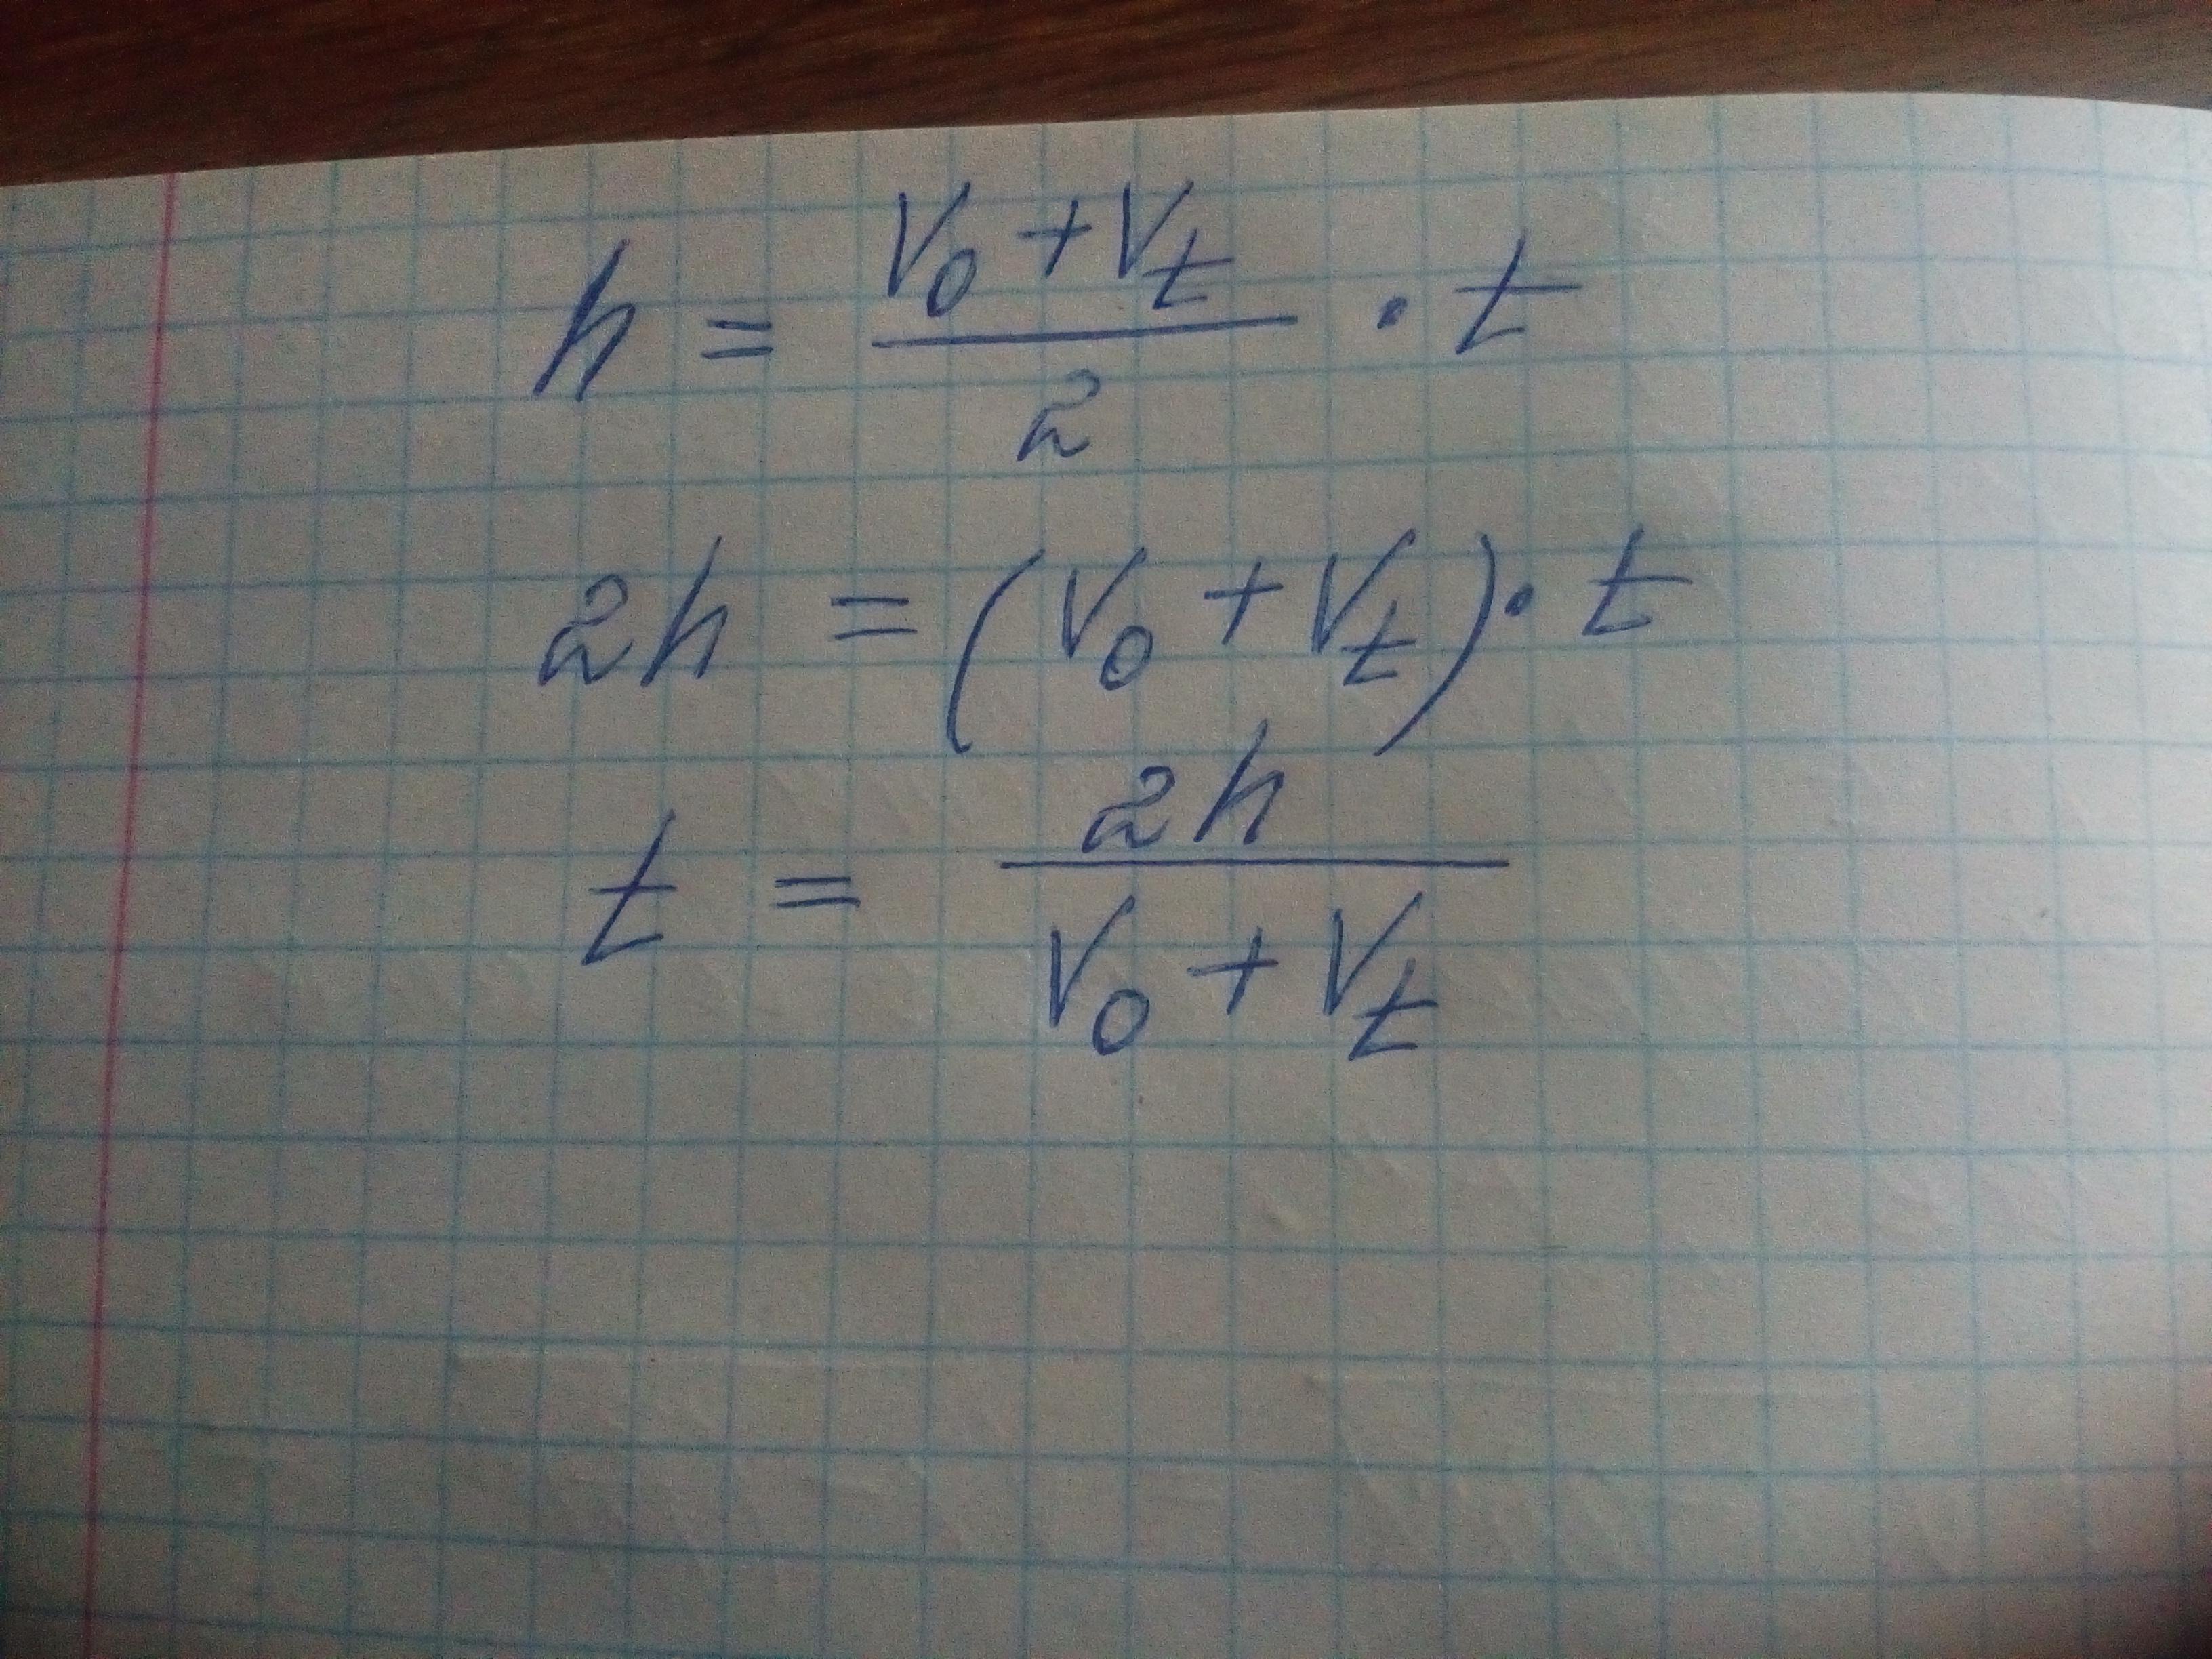 h = (V₀ + Vₜ)/2 · t
2h = (V₀ + Vₜ) · t
t = 2h/(V₀ + Vₜ)